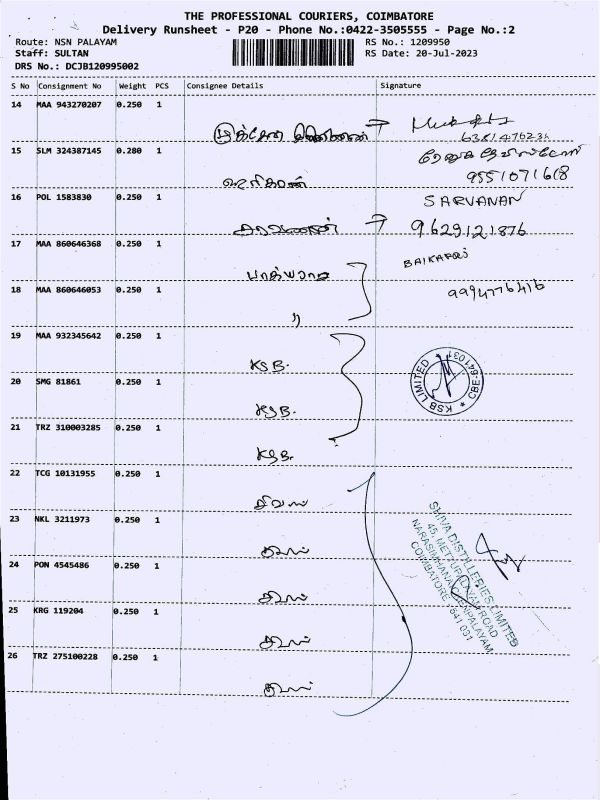 THE PROFESSIONAL COURIERS, COIMBATORE
Delivery Runsheet - P20 - Phone No.:0422-3505555 - Page No.:2
Route: NSN PALAYAM
RS No.: 1209950
Staff: SULTAN
RS Date: 20-Jul-2023
DRS No.: DCJB120995002
S No Consignment No Weight PCS Consignee Details Signature
14 MAA 943270207 0.250 1
15 SLM 324387145 0.280 1
9551071618
16 POL 1583830 0.250 1
SARVANAN
சரவணன் 9629121876
17 MAA 860646368 0.250 1
18 MAA 860646053 0.250 1
9994776416
"
19 MAA 932345642 0.250 1
KSB.
KSB LIMITED * CBE-641031
20 SMG 81861 0.250 1
KSB.
21 TRZ 310003285 0.250 1
KSB.
22 TCG 10131955 0.250 1
23 NKL 3211973 0.250 1
24 PON 4545486 0.250 1
25 KRG 119204 0.250 1
26 TRZ 275100228 0.250 1
SHIVA DISTILLERIES LIMITED
45, METTUPALAYAM ROAD
NARASIMHANAICKENPALAYAM
COIMBATORE - 641 031